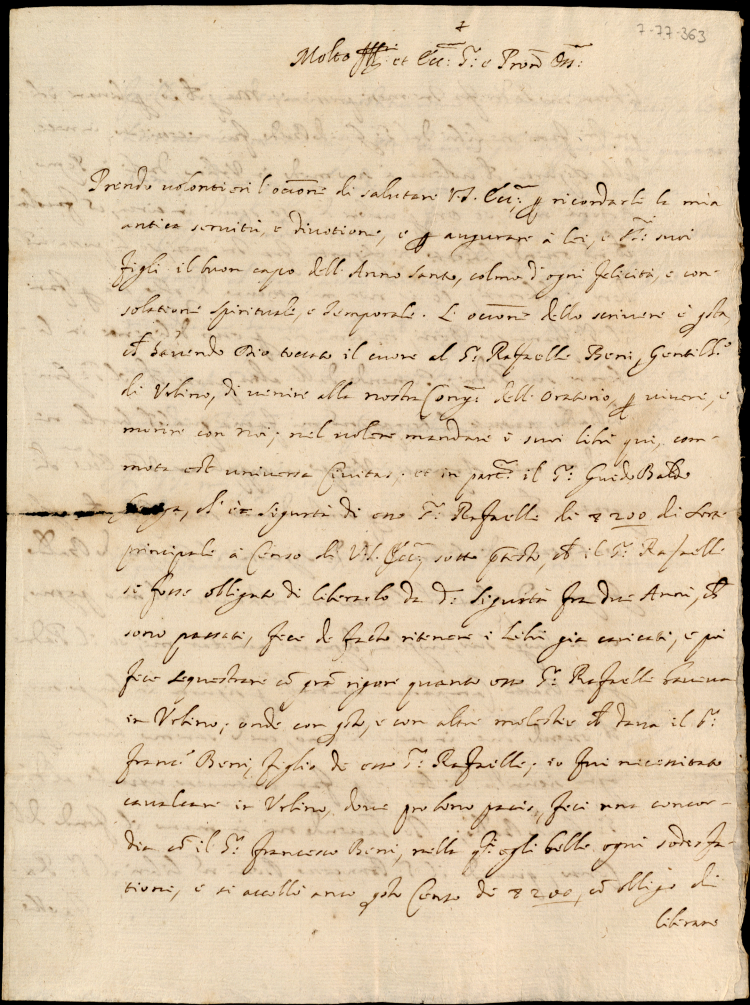 7-77-363
+
Molto Ill: et Ecc: Sr. e Pron Oss:
Prendo volontieri l'occne di salutare V.S. Ecc: p ricordarle la mia
antica servitù, e divotione, e p augurare à lei, e Sri suoi
figli il buon capo dell'Anno santo, colmo d'ogni felicità, e con-
solatione spirituale, e temporale. L'occne dello scrivere è qsta,
ch havendo Dio toccato il cuore al Sr. Raffaelle Beni, Gentilho
di Urbino, di venire alla nostra Congne dell'Oratorio, p vivere, e
morire con noi; nel volere mandare i suoi libri qui, com-
mota est universa Civitas; et in partre il Sr. Guido Baldo
ch'è sigurtà di esso Sr. Raffaelle di 200 di sorte
principale à Censo di V.S. Ecc: sotto ptesto, ch il Sr. Raffaelle
se fosse obligato di liberarlo da da sigurtà fra due Anni, ch
sono passati, fece de facto ritenere i libri già caricati, e poi
fece sequestrare cō gran rigore quanto esso Sr. Raffaelle haveva
in Urbino; onde con qsto, e con altre molestie ch dava il Sr.
Franco Beni, figlio de esso Sr. Raffaelle; io fui necessitato
cavalcare in Urbino, dove pro bono pacis, feci una concor-
dia cō il Sr. Francesco Beni, nella qle egli hebbe ogni sodisfa-
tione, e si accollò anco qsto Censo de 200, cō obligo di
liberare